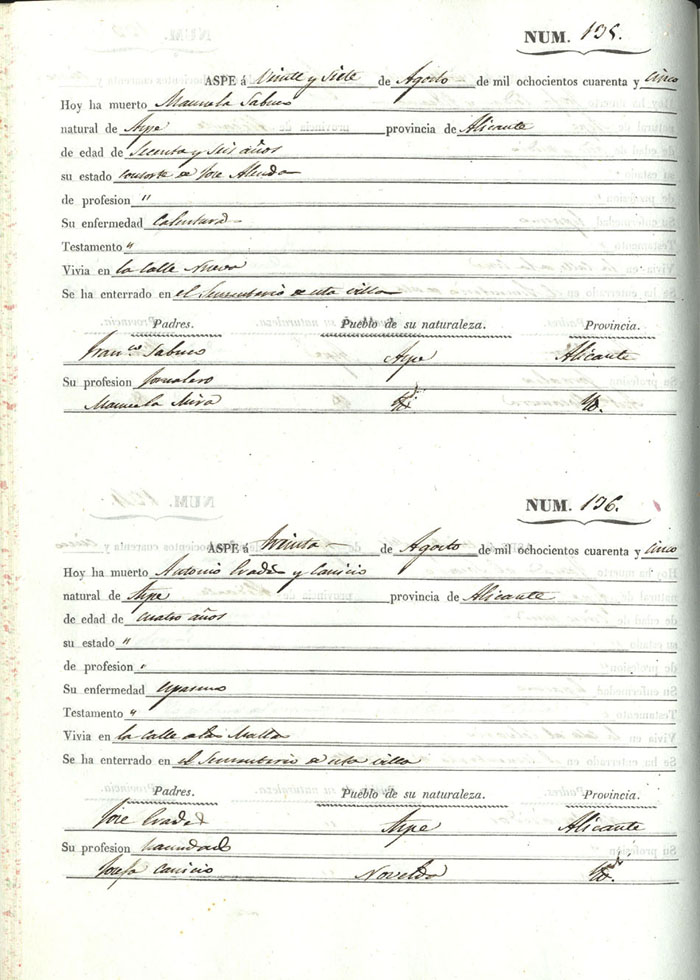 NUM. 135.
ASPE á Veinte y Siete de Agosto de mil ochocientos cuarenta y cinco
Hoy ha muerto Manuela Sabuco
natural de Aspe provincia de Alicante
de edad de Sesenta y Seis años
su estado consorte de Jose Almodo
de profesion "
Su enfermedad Calentura
Testamento "
Vivia en la Calle Nueva
Se ha enterrado en el Sementerio de esta villa
Padres. Pueblo de su naturaleza. Provincia.
Franco. Sabuco Aspe Alicante
Su profesion Jornalero
Manuela Mira Yd. Yd.
NUM. 136.
ASPE á treinta de Agosto de mil ochocientos cuarenta y cinco
Hoy ha muerto Antonio y Canicio
natural de Aspe provincia de Alicante
de edad de cuatro años
su estado "
de profesion "
Su enfermedad espasmo
Testamento "
Vivia en la Calle de la Malla
Se ha enterrado en el Sementerio de esta villa
Padres. Pueblo de su naturaleza. Provincia.
Jose Aspe Alicante
Su profesion hacendado
Josefa Canicio Novelda Yd.